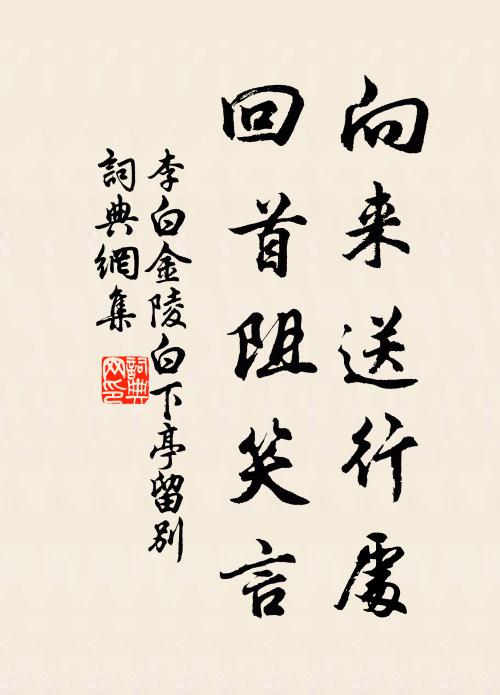 向来送行處
回首阻笑言
李白金陵白下亭留別
詞典網集
詞典網印